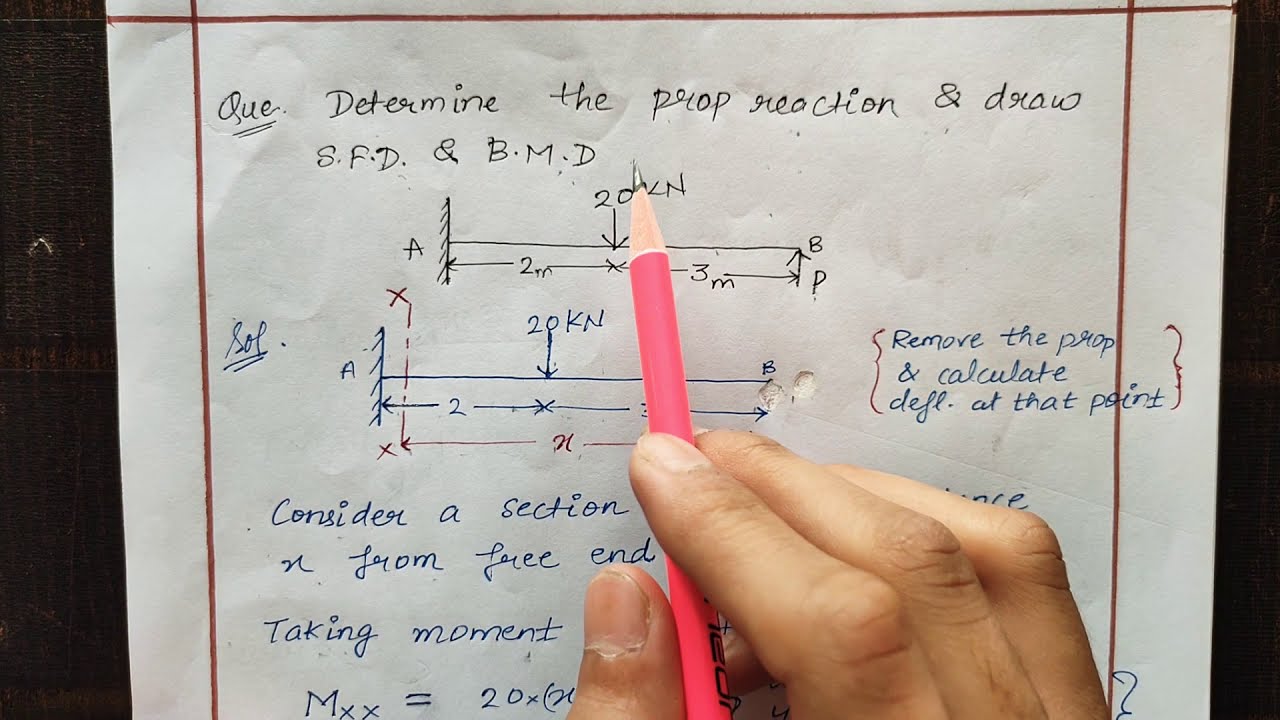 Que. Determine the prop reaction & draw
S.F.D. & B.M.D
20KN
A
B
2m
3m
P
X
Sol.
20KN
A
B
2
X
x
Remove the prop
& calculate
defl. at that point
Consider a section
x from free end
Taking moment
Mxx = 20×(x